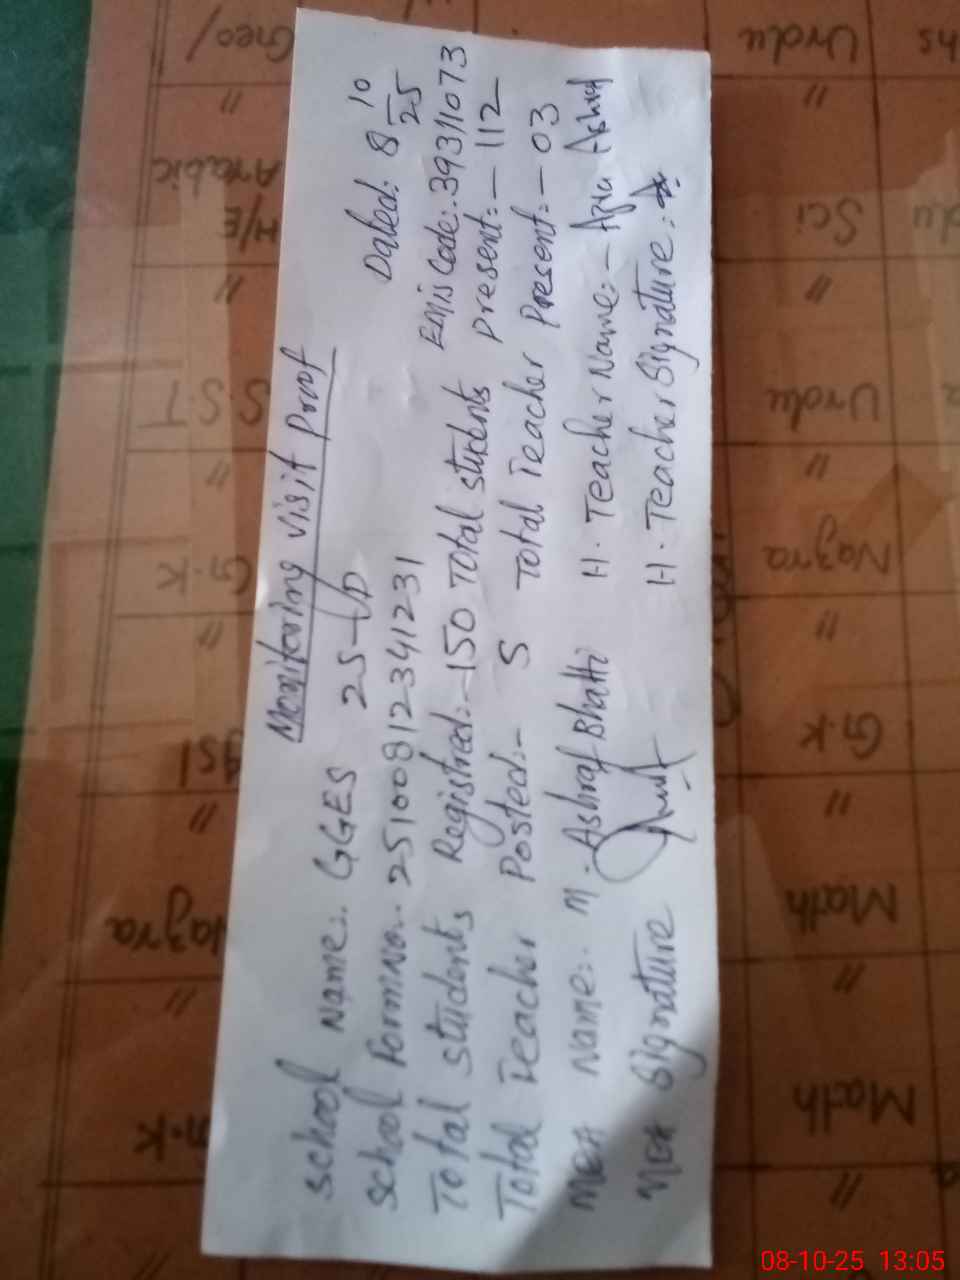 Monitoring visit Proof
School Name:. GGES 25-D Dated: 8 10/25
School Form No.. 2510081234 1231 Emis Code:. 39311073
Total students Registred:- 150 Total students Present:- 112
Total Teacher Posted:- 5 Total Teacher Present:- 03
MEA Name:. M. Ashraf Bhatti H. Teacher Name:- Azra Ashraf
MEA Signature H. Teacher Signature:
Geo/
Urdu
hs
"
"
Arabic
H/E
Sci
"
"
S.ST
Urdu
"
"
G.K
Nazra
"
"
G.K
"
"
Nazra
Math
"
"
Math
"
08-10-25 13:05